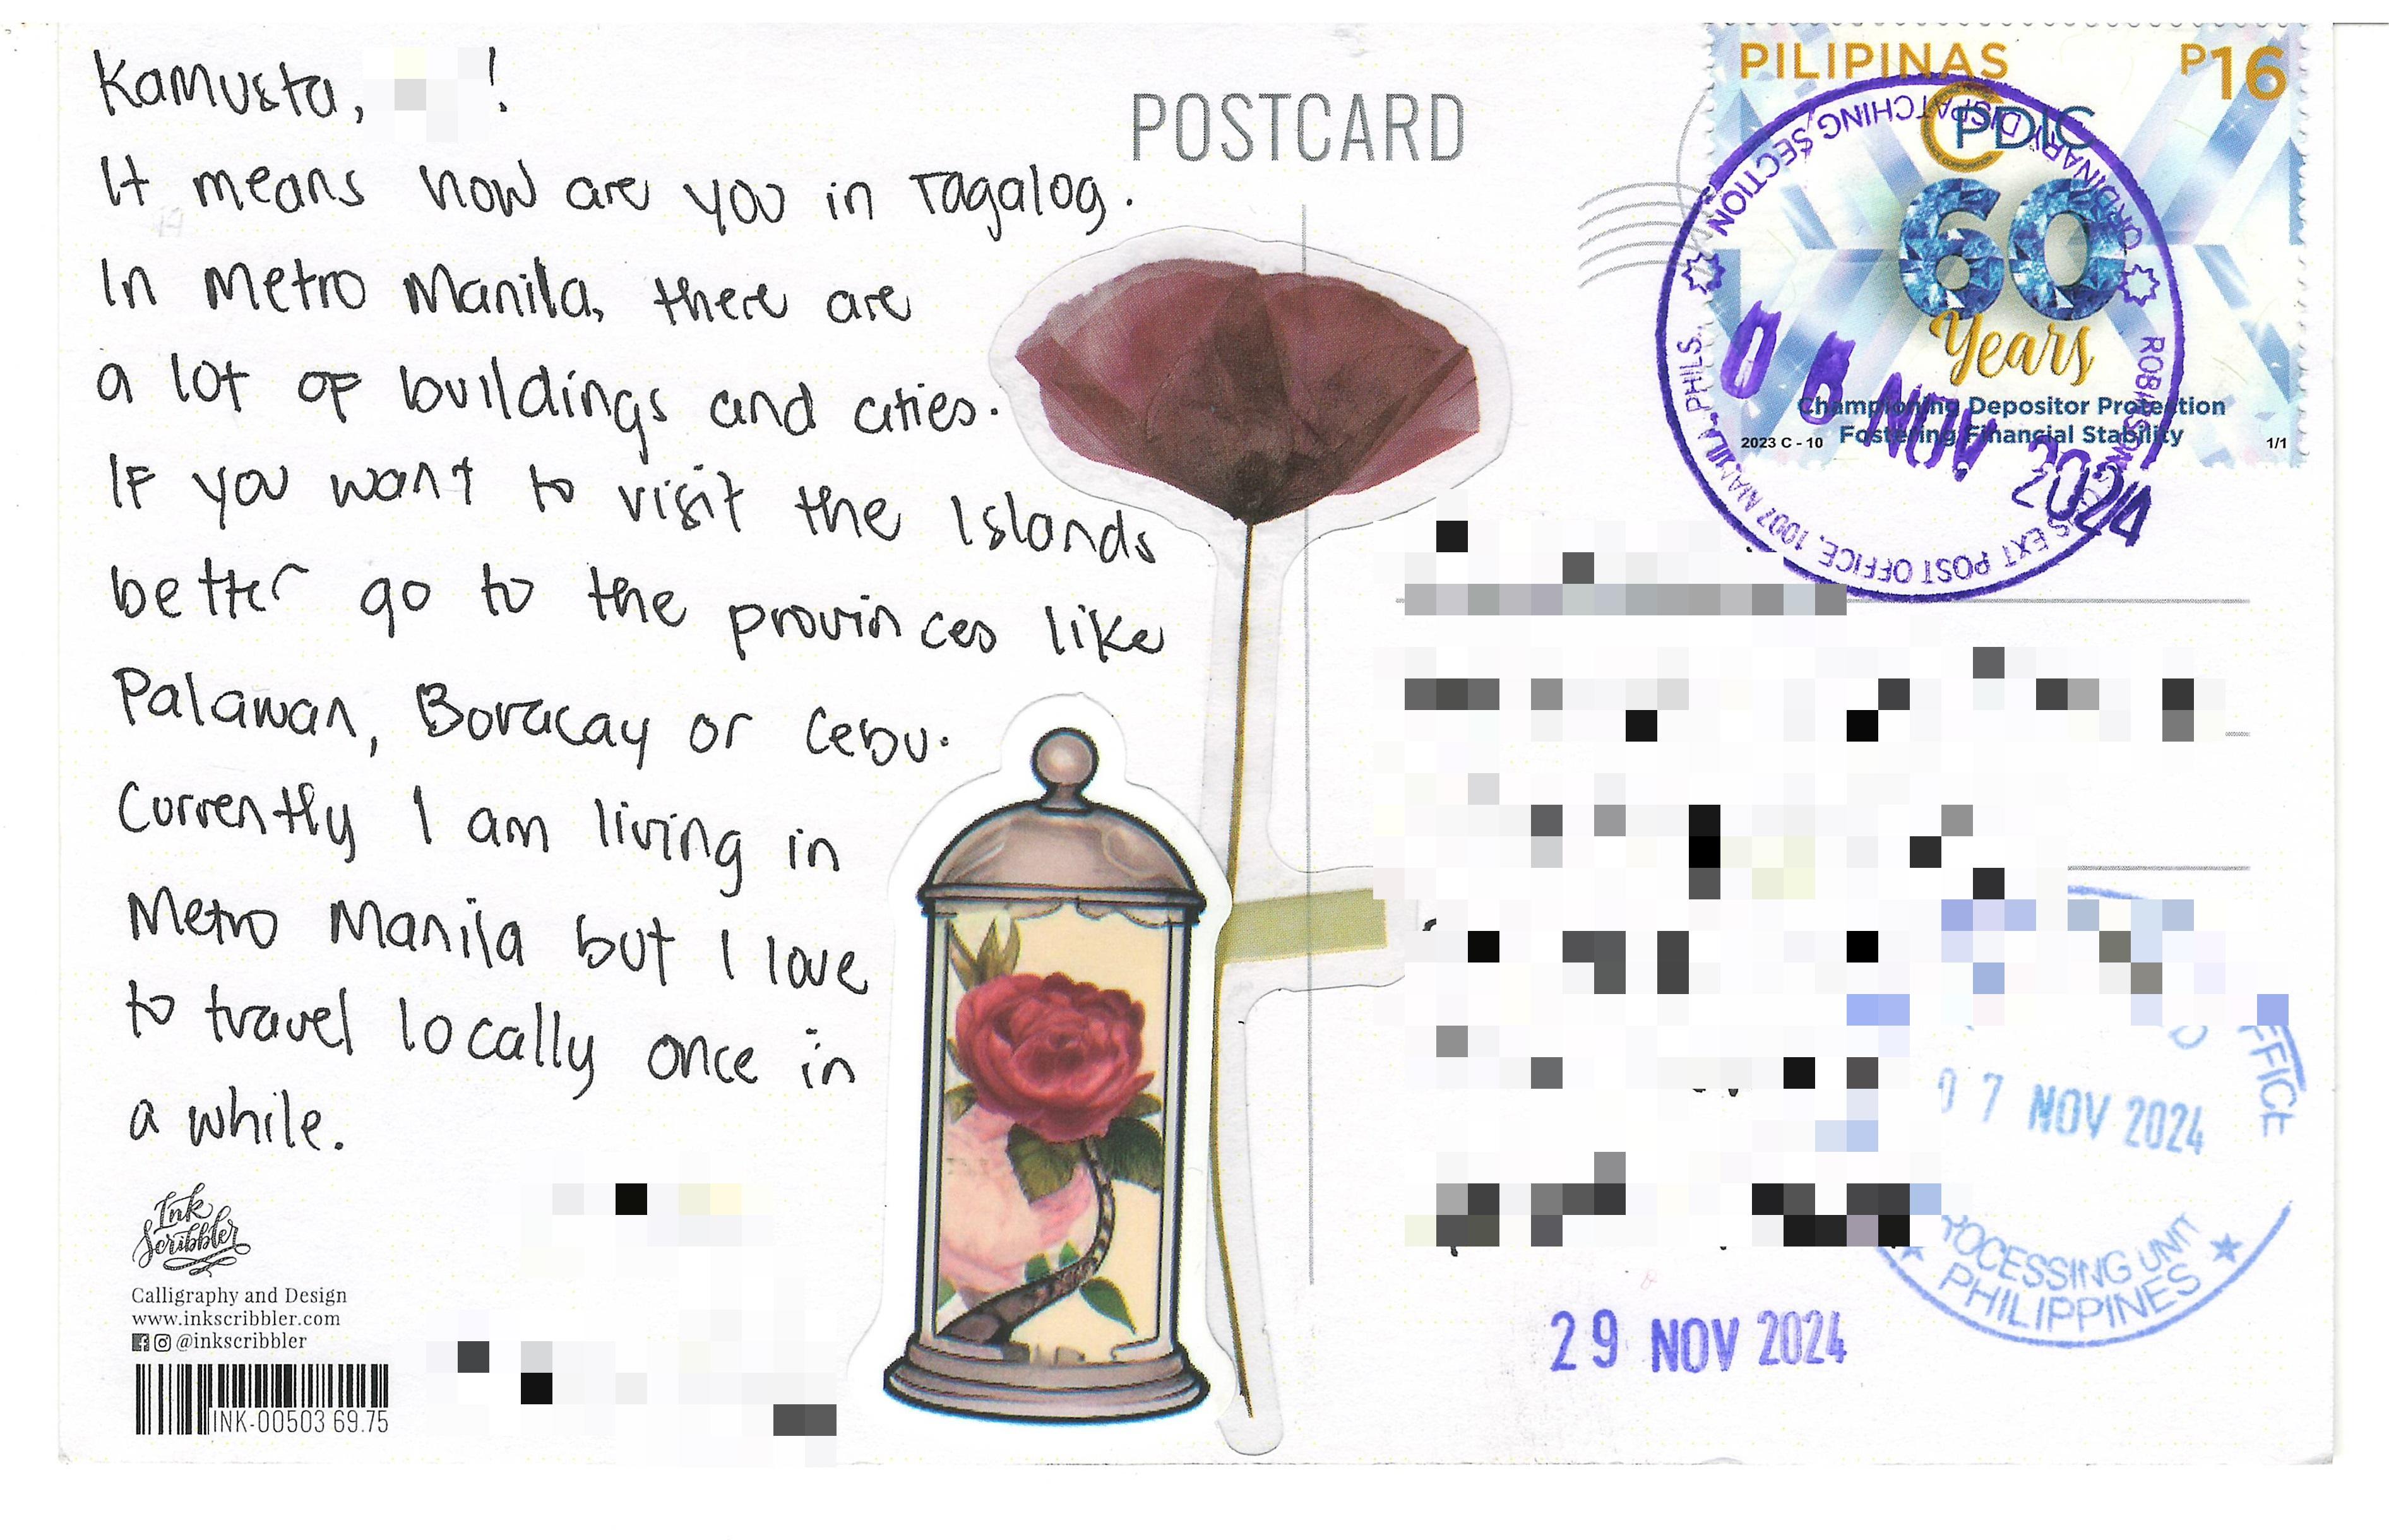 Kamusta, !
It means how are you in Tagalog.
In Metro Manila, there are
a lot of buildings and cities.
If you want to visit the Islands
better go to the provinces like
Palawan, Boracay or Cebu.
Currently I am living in
Metro Manila but I love
to travel locally once in
a while.
Ink
Scribbler
Calligraphy and Design
www.inkscribbler.com
@inkscribbler
INK-00503 69.75
POSTCARD
PILIPINAS P16
PDIC
60
Years
Championing Depositor Protection
Fostering Financial Stability
2023 C - 10
1/1
ORDINARY DISPATCHING SECTION
ROBINSONS EXT POST OFFICE, 1007 MANILA, PHILS.
NOV 2024
07 NOV 2024
OFFICE
PROCESSING UNIT
PHILIPPINES
29 NOV 2024